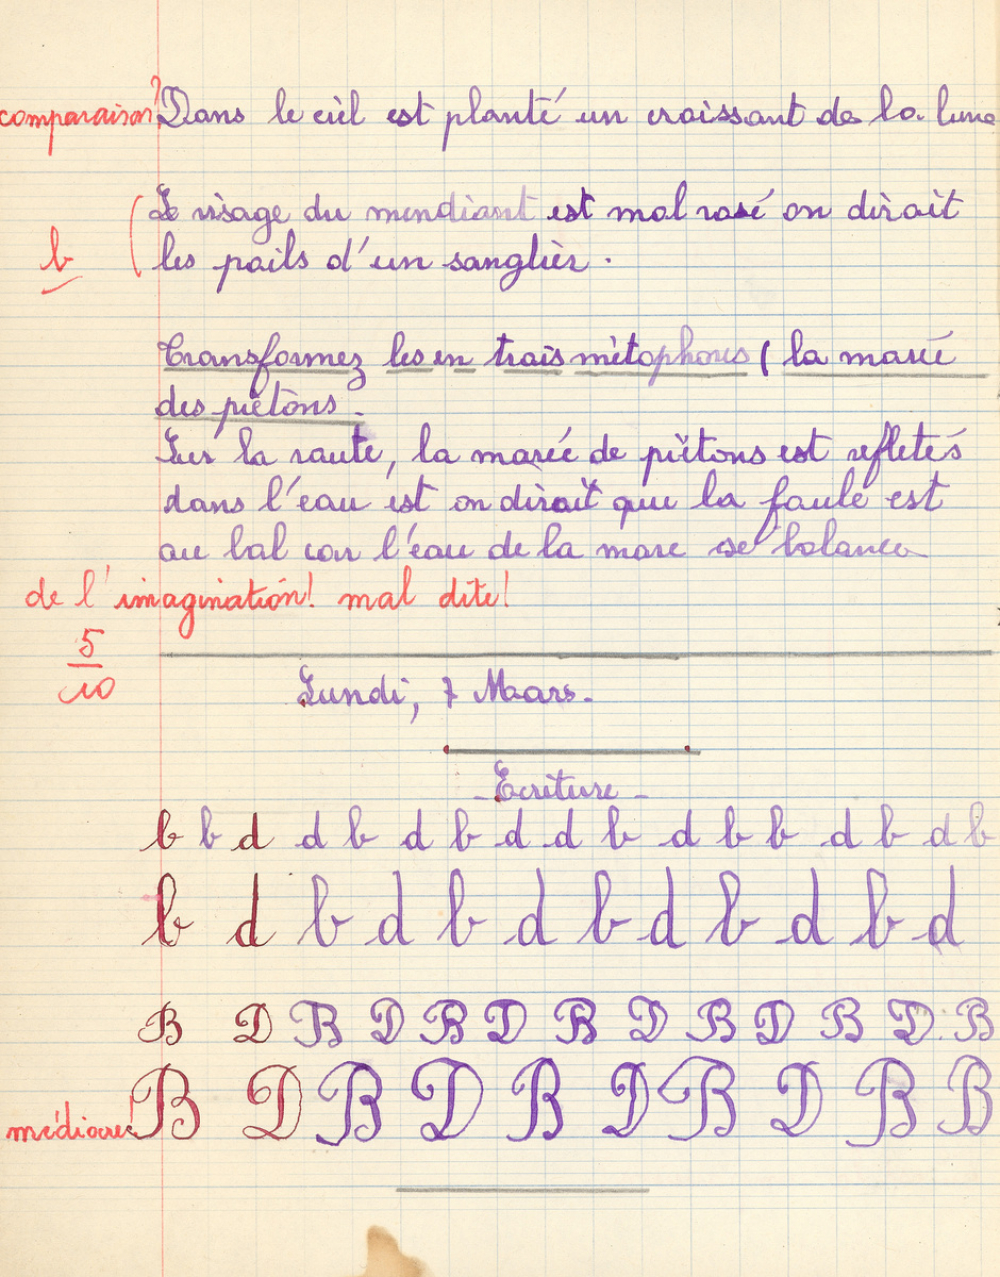 comparaison? Dans le ciel est planté un croissant de la lune
Le visage du mendiant est mal rasé on dirait
b les poils d'un sanglier.
Transformez les en trois métophores (la marée
des piétons.
Sur la route, la marée de piétons est refletés
dans l'eau est on dirait que la foule est
au bal car l'eau de la mare se balance
de l'imagination! mal dite!
5
10
Lundi, 7 Maars.
- Ecriture -
b b d d b d b d d b d b b d b d b
b d b d b d b d b d b d
B D B D B D B D B D B D B
médiocre! B D B D B D B D B B